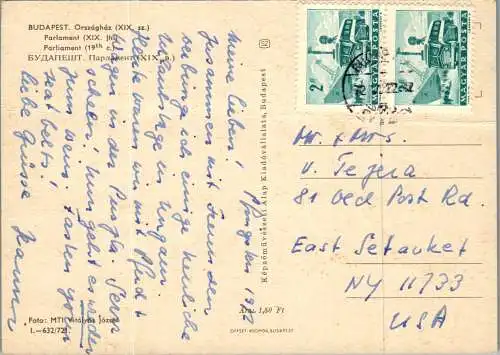 BUDAPEST. Országház (XIX. sz.)
Parlament (XIX. Jh.)
Parliament (19th c.)
БУДАПЕШТ. Парламент (XIX в.)
Pfingsten 1972
Meine Lieben!
Zusammen mit Freunden
verbringe ich einige herrliche
Urlaubstage in Ungarn.
Heute waren wir mit Pferd +
Wagen in der Puszta. Sehr
schön! Nun geht es wieder
zum Wein-
Liebe Grüsse
Hanna
Foto: MTI Vitályos József
I.—632/721
Képzőművészeti Alap Kiadóvállalata, Budapest
Ára: 1,80 Ft
OFFSET-KIOPOK, BUDAPEST
2 Ft
MAGYAR POSTA
MAGYAR POSTA
V. Tezera
81 Old Post Rd.
East Setauket
NY 11733
USA